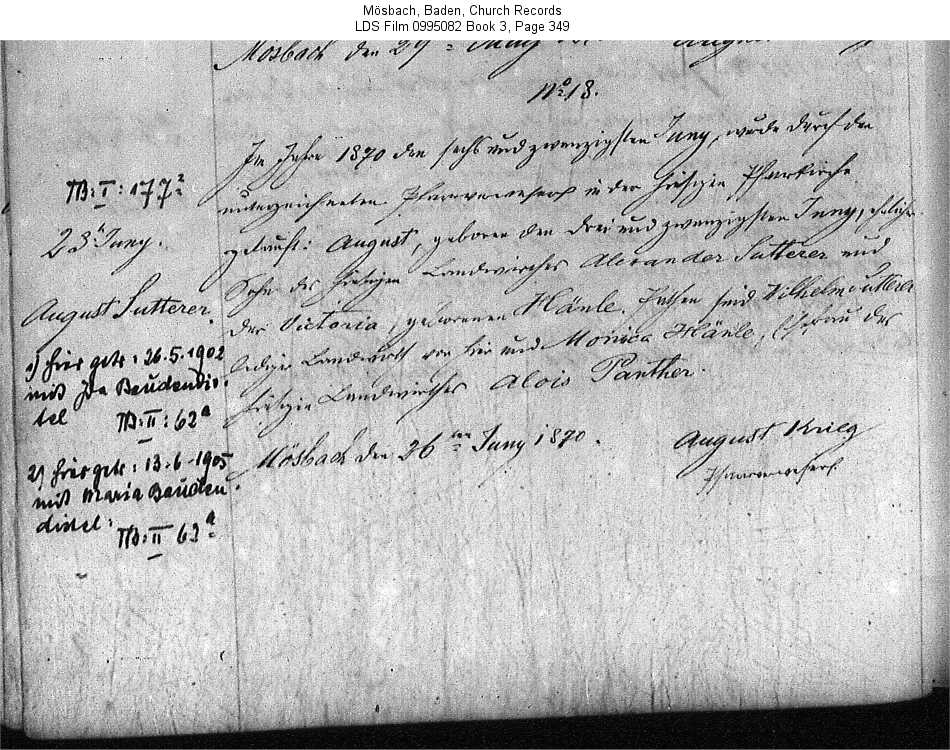 Mösbach, Baden, Church Records
LDS Film 0995082 Book 3, Page 349
Mösbach den
No 18.
Im Jahre 1870 den sechs und zwanzigsten Juny, wurde durch den
unterzeichneten Pfarrverweser in der hiesigen Pfarrkirche
getauft: August, geboren den drei und zwanzigsten Juny, ehelicher
Sohn des hiesigen Landwirthes Alexander Sutterer und
der Victoria, geborenen Hänle. Pathen sind Wilhelm Sutterer
lediger Landwirth von hier und Monica Hänle, Ehefrau des
hiesigen Landwirthes Alois Panther.
Mösbach den 26ten Juny 1870.
August Krieg
Pfarrverweser
FB: I: 177²
23 Juny.
August Sutterer.
1) hier getr: 26.5.1902
mit Ida Beudendis-
tel
FB: II: 62a
2) hier getr: 13.6.1905
mit Maria Beuden
distel:
FB: II 62a